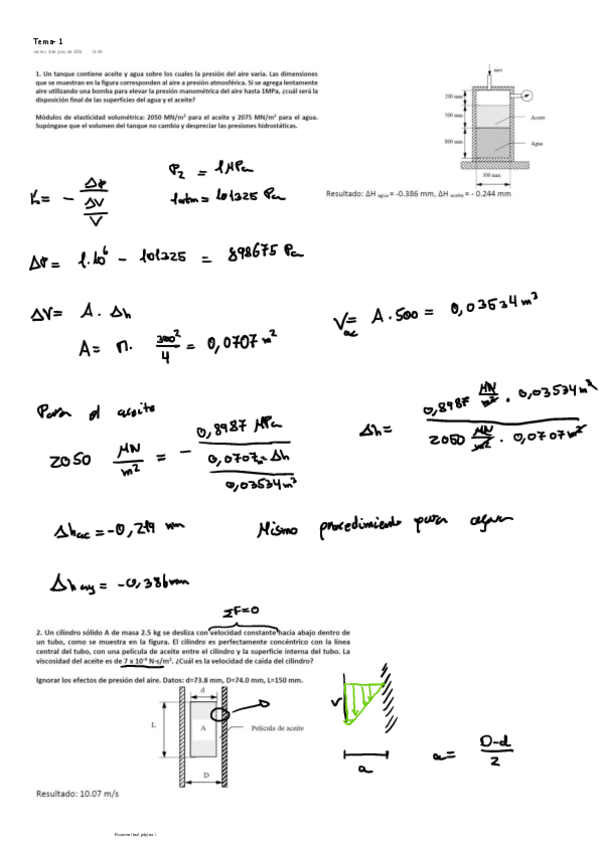 Tema- 1
1. Un tanque contiene aceite y agua sobre los cuales la presión del aire varía. Las dimensiones
que se muestran en la figura corresponden al aire a presión atmosférica. Si se agrega lentamente
aire utilizando una bomba para elevar la presión manométrica del aire hasta 1MPa, ¿cuál será la
disposición final de las superficies del agua y el aceite?
Módulos de elasticidad volumétrica: 2050 MN/m² para el aceite y 2075 MN/m² para el agua.
Supóngase que el volumen del tanque no cambia y despreciar las presiones hidrostáticas.
aire
200 mm
500 mm
Aceite
800 mm
Agua
300 mm
Resultado: ΔH agua = -0.386 mm, ΔH aceite = - 0.244 mm
P₂ = 1 MPa
1atm = 101325 Pa
K = - ΔP / (ΔV / V)
ΔP = 1·10⁶ - 101325 = 898675 Pa
ΔV = A · Δh
V ac = A · 500 = 0,03534 m³
A = π · 300² / 4 = 0,0707 m²
Para el aceite
2050 MN/m² = - 0,8987 MPa / (0,0707 · Δh / 0,03534 m³)
Δh = 0,8987 MN/m² · 0,03534 m³ / 2050 MN/m² · 0,0707 m²
Δh ac = -0,219 mm
Mismo procedimiento para agua
Δh ag = -0,386 mm
ΣF=0
2. Un cilindro sólido A de masa 2.5 kg se desliza con velocidad constante hacia abajo dentro de
un tubo, como se muestra en la figura. El cilindro es perfectamente concéntrico con la línea
central del tubo, con una película de aceite entre el cilindro y la superficie interna del tubo. La
viscosidad del aceite es de 7 x 10⁻³ N·s/m². ¿Cuál es la velocidad de caída del cilindro?
Ignorar los efectos de presión del aire. Datos: d=73.8 mm, D=74.0 mm, L=150 mm.
d
L
A
Película de aceite
D
V
a
a = D-d / 2
Resultado: 10.07 m/s